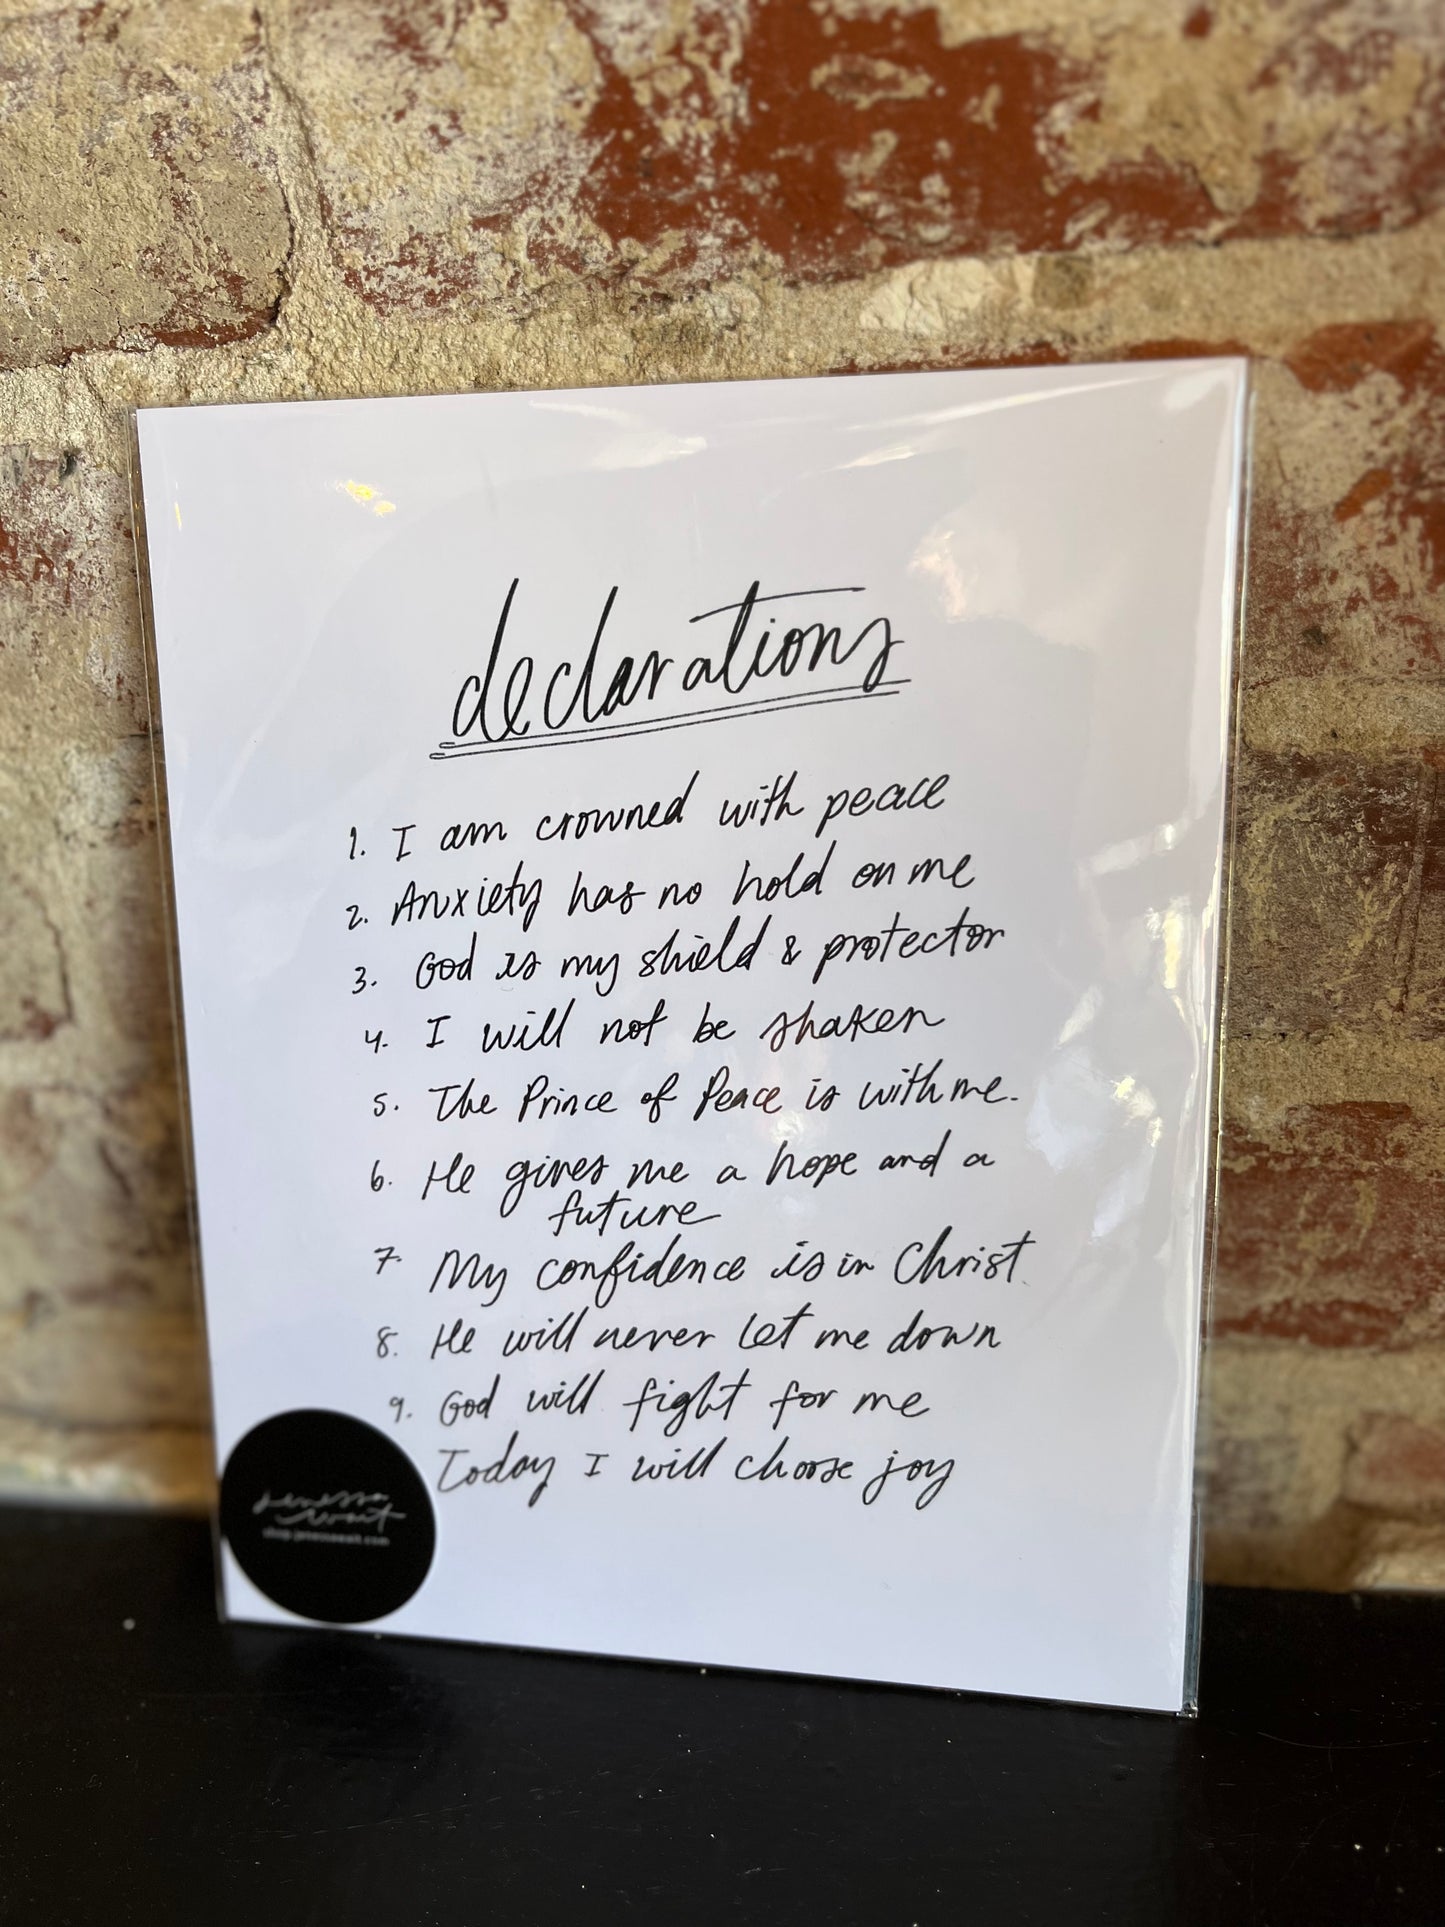 declarations
1. I am crowned with peace
2. Anxiety has no hold on me
3. God is my shield & protector
4. I will not be shaken
5. The Prince of Peace is with me.
6. He gives me a hope and a
future
7. My confidence is in Christ
8. He will never let me down
9. God will fight for me
Today I will choose joy
jenessa
wait
shop.jenessawait.com